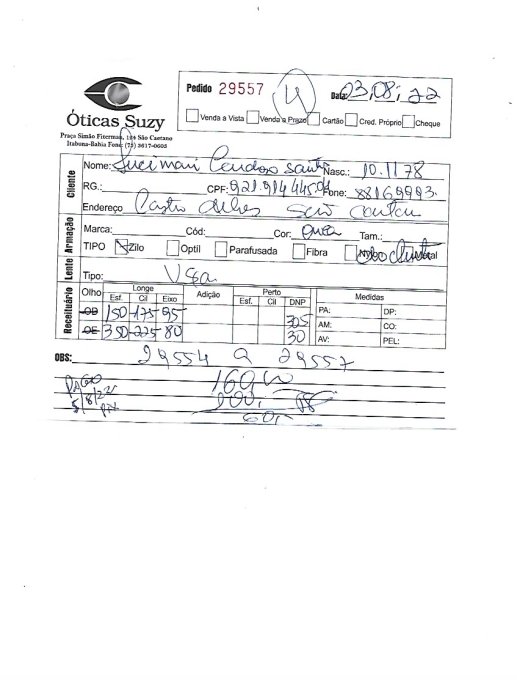 Óticas Suzy
Praça Simão Fiterman, 124 São Caetano
Itabuna-Bahia Fone: (73) 3617-0603
Pedido 29557 Data: 03/08/22
Venda a Vista Venda a Prazo Cartão Cred. Próprio Cheque
Cliente
Nome: Lucimari Cardoso Nasc.: 10.11.78
RG.: CPF: Fone: 88169993
Endereço Castro Alves
Armação
Marca: Cód: Cor: Tam.:
TIPO Zilo Optil Parafusada Fibra Nylon Metal
Lente
Tipo: VSA
Receituário
Olho Longe Adição Perto Medidas
Esf. Cil Eixo Esf. Cil DNP
OD 150 -175 95 305 PA: DP:
AM: CO:
OE 350 -225 80 30 AV: PEL:
OBS: 29554 a 29557
PAGO 160,00
5/8/22 100,
60,